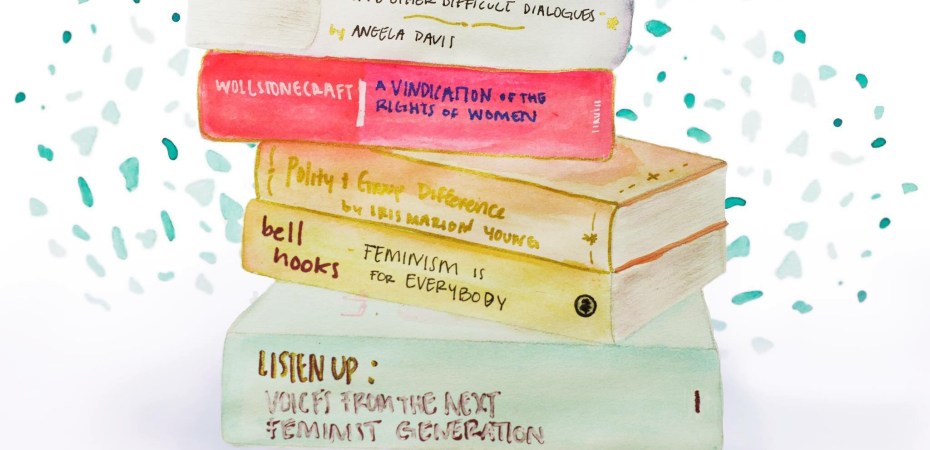 OTHER DIFFICULT DIALOGUES
by ANGELA DAVIS
WOLLSTONECRAFT
A VINDICATION OF THE
RIGHTS OF WOMEN
Polity & Group Difference
by IRIS MARION YOUNG
bell
hooks
FEMINISM IS
FOR EVERYBODY
LISTEN UP:
VOICES FROM THE NEXT
FEMINIST GENERATION